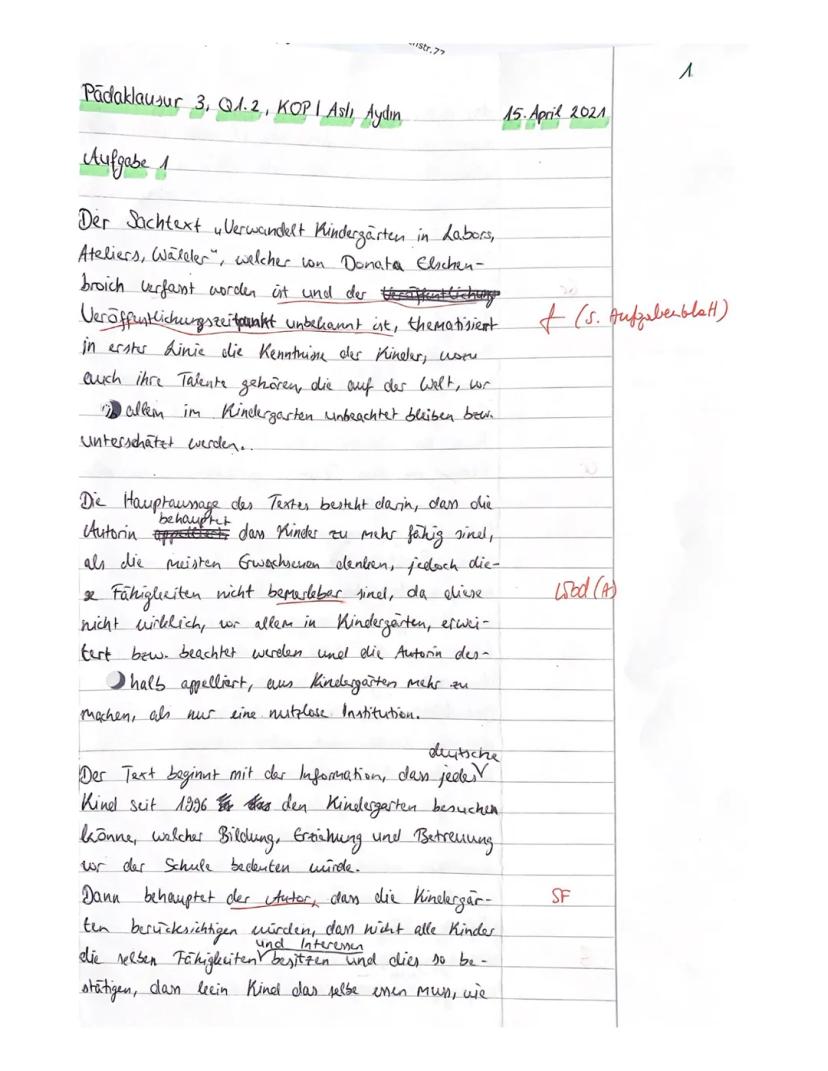 nstr.77
1
Pädaklausur 3, Q1.2, KOP1 Aslı Aydın 15. April 2021
Aufgabe 1
Der Sachtext „Verwandelt Kindergärten in Labors,
Ateliers, Wälder", welcher von Donata Elschen-
broich verfasst worden ist und der Veröffentlichung
Veröffentlichungszeitpunkt unbekannt ist, thematisiert f (s. Aufgabenblatt)
in erster Linie die Kenntnisse der Kinder, wozu
auch ihre Talente gehören, die auf der Welt, vor
allem im Kindergarten unbeachtet bleiben bzw.
unterschätzt werden..
Die Hauptaussage des Textes besteht darin, dass die
behauptet
Autorin appelliert, dass Kinder zu mehr fähig sind,
als die meisten Erwachsenen denken, jedoch die-
se Fähigkeiten nicht bemerkbar sind, da diese Wod (A)
nicht wirklich, vor allem in Kindergärten, erwei-
tert bzw. beachtet werden und die Autorin des-
halb appelliert, aus Kindergärten mehr zu
machen, als nur eine nutzlose Institution.
deutsche
Der Text beginnt mit der Information, dass jedes
Kind seit 1996 den Kindergarten besuchen
könne, welcher Bildung, Erziehung und Betreuung
vor der Schule bedeuten würde.
Dann behauptet der Autor, dass die Kindergär- SF
ten berücksichtigen würden, dass nicht alle Kinder
und Interessen
die selben Fähigkeiten besitzen und dies so be-
stätigen, dass kein Kind das selbe essen muss, wie